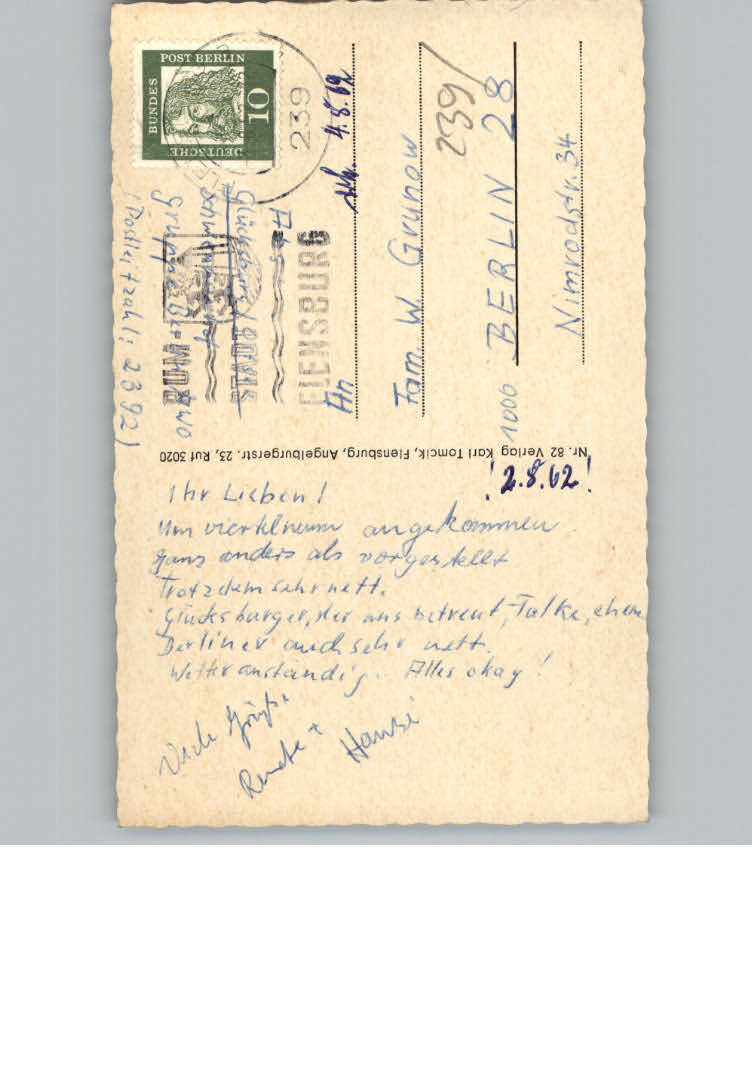 DEUTSCHE
BUNDES
POST BERLIN
10
239
FLENSBURG
RUM
Abs
Glücksburg/Ostsee
Gruppe Berlin two
(Postleitzahl: 2392)
erh. 4.8.62
An
Fam. W. Grunow
239/
1000 BERLIN 28
Nimrodstr. 34
Nr. 82 Verlag Karl Tomcik, Flensburg, Angelburgerstr. 23, Ruf 5020
! 2.8.62 !
Ihr Lieben!
Um vierklneun angekommen
ganz anders als vorgestellt
Trotzdem sehr nett.
Glücksburger, der uns betreut, Talke, ehem
Berliner auch sehr nett.
Wetter anständig. Alles okay!
Viele Grüße
Renate + Hansi